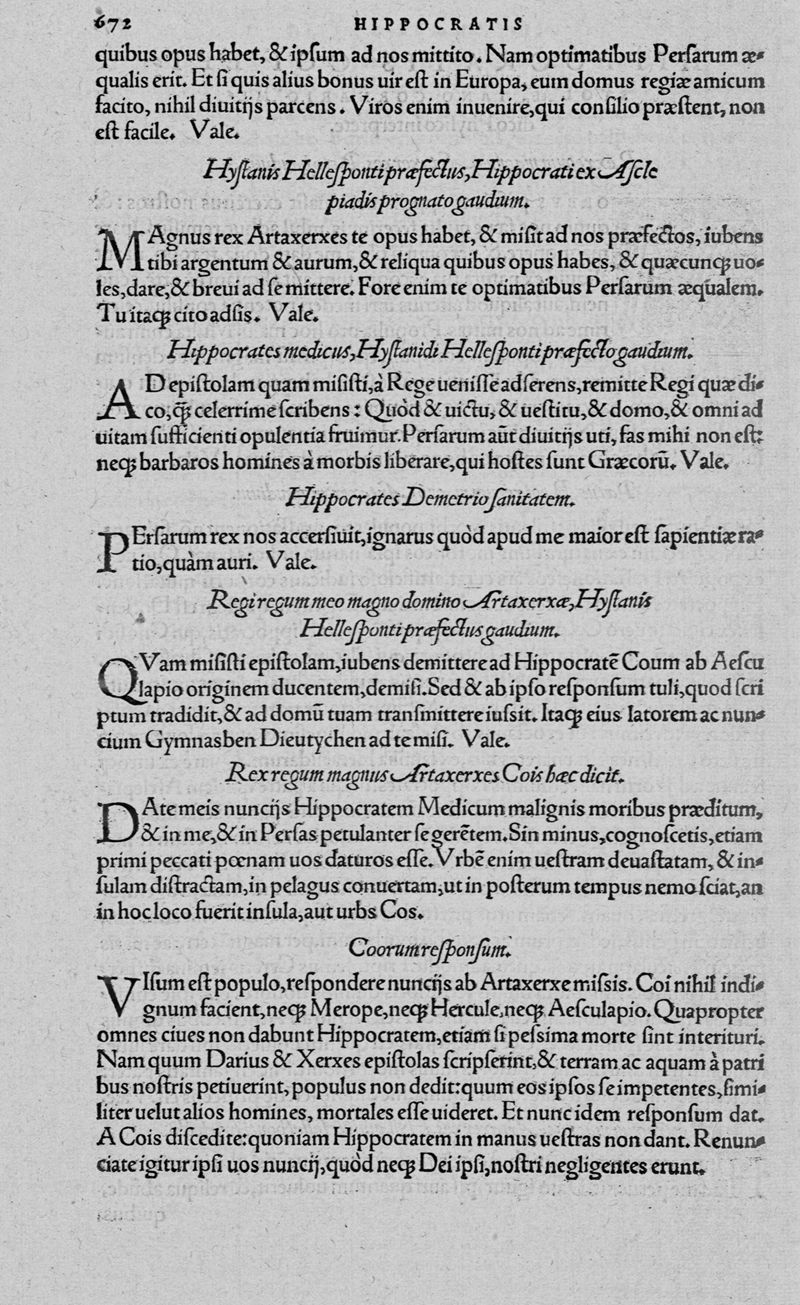 672 HIPPOCRATIS
quibus opus habet, & ipſum ad nos mittito. Nam optimatibus Perſarum æ⸗
qualis erit. Et ſi quis alius bonus uir eſt in Europa, eum domus regiæ amicum
facito, nihil diuitijs parcens. Viros enim inuenire, qui conſilio præſtent, non
eſt facile. Vale.
Hyſtanis Helleſponti præfectus, Hippocrati ex Aſcle
piadis prognato gaudium.
MAgnus rex Artaxerxes te opus habet, & miſit ad nos præfectos, iubens
tibi argentum & aurum, & reliqua quibus opus habes, & quæcunqꝫ uo⸗
les, dare, & breui ad ſe mittere. Fore enim te optimatibus Perſarum æqualem.
Tu itaqꝫ cito adſis. Vale.
Hippocrates medicus, Hyſtanidi Helleſponti præfecto gaudium.
AD epiſtolam quam miſiſti, à Rege ueniſſe adſerens, remitte Regi quæ di⸗
co, qꝫ celerrime ſcribens: Quòd & uictu, & ueſtitu, & domo, & omni ad
uitam ſufficienti opulentia fruimur. Perſarum aūt diuitijs uti, fas mihi non eſt:
neqꝫ barbaros homines à morbis liberare, qui hoſtes ſunt Græcorū. Vale.
Hippocrates Demetrio ſanitatem.
PErſarum rex nos accerſiuit, ignarus quòd apud me maior eſt ſapientiæ ra⸗
tio, quàm auri. Vale.
Regi regum meo magno domino Artaxerxæ, Hyſtanis
Helleſponti præfectus gaudium.
QVam miſiſti epiſtolam, iubens demittere ad Hippocratē Coum ab Aeſcu
lapio originem ducentem, demiſi. Sed & ab ipſo reſponſum tuli, quod ſcri
ptum tradidit, & ad domū tuam tranſmittere iuſsit. Itaqꝫ eius latorem ac nun⸗
cium Gymnasben Dieutychen ad te miſi. Vale.
Rex regum magnus Artaxerxes Cois hæc dicit.
DAte meis nuncijs Hippocratem Medicum malignis moribus præditum,
& in me, & in Perſas petulanter ſe gerētem. Sin minus, cognoſcetis, etiam
primi peccati pœnam uos daturos eſſe. Vrbē enim ueſtram deuaſtatam, & in⸗
ſulam diſtractam, in pelagus conuertam, ut in poſterum tempus nemo ſciat, an
in hoc loco fuerit inſula, aut urbs Cos.
Coorum reſponſum.
VIſum eſt populo, reſpondere nuncijs ab Artaxerxe miſsis. Coi nihil indi⸗
gnum facient, neqꝫ Merope, neqꝫ Hercule, neqꝫ Aeſculapio. Quapropter
omnes ciues non dabunt Hippocratem, etiam ſi peſsima morte ſint interituri.
Nam quum Darius & Xerxes epiſtolas ſcripſerint, & terram ac aquam à patri
bus noſtris petiuerint, populus non dedit: quum eos ipſos ſe impetentes, ſimi⸗
liter uelut alios homines, mortales eſſe uideret. Et nunc idem reſponſum dat.
A Cois diſcedite: quoniam Hippocratem in manus ueſtras non dant. Renun⸗
ciate igitur ipſi uos nuncij, quòd neqꝫ Dei ipſi, noſtri negligentes erunt.